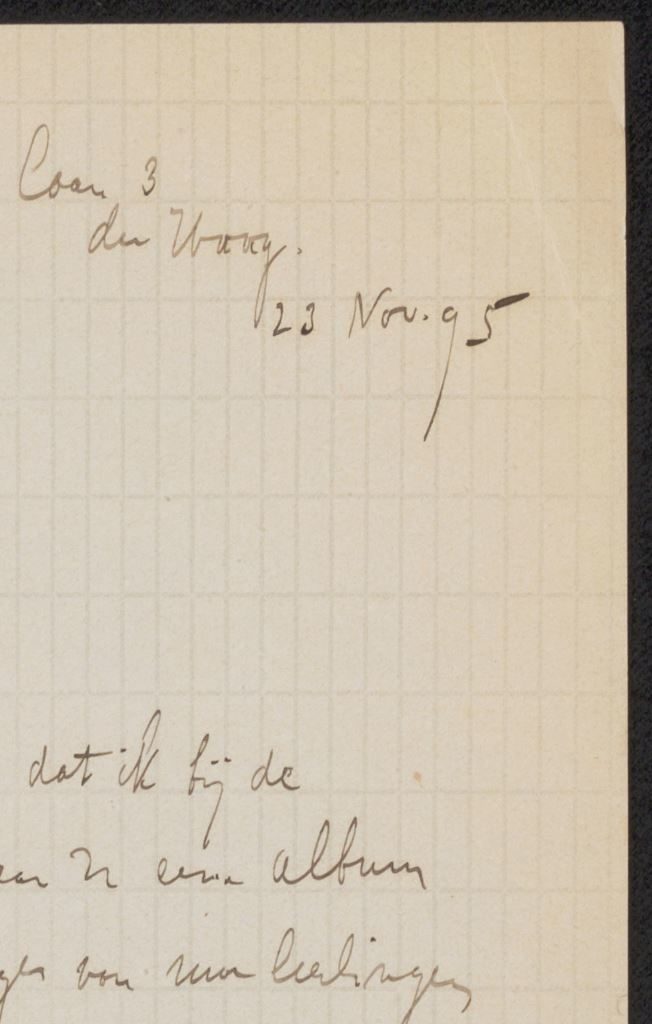 Laan 3
den Haag.
23 Nov. 95
dat ik bij de
een album
van mijn leerlingen